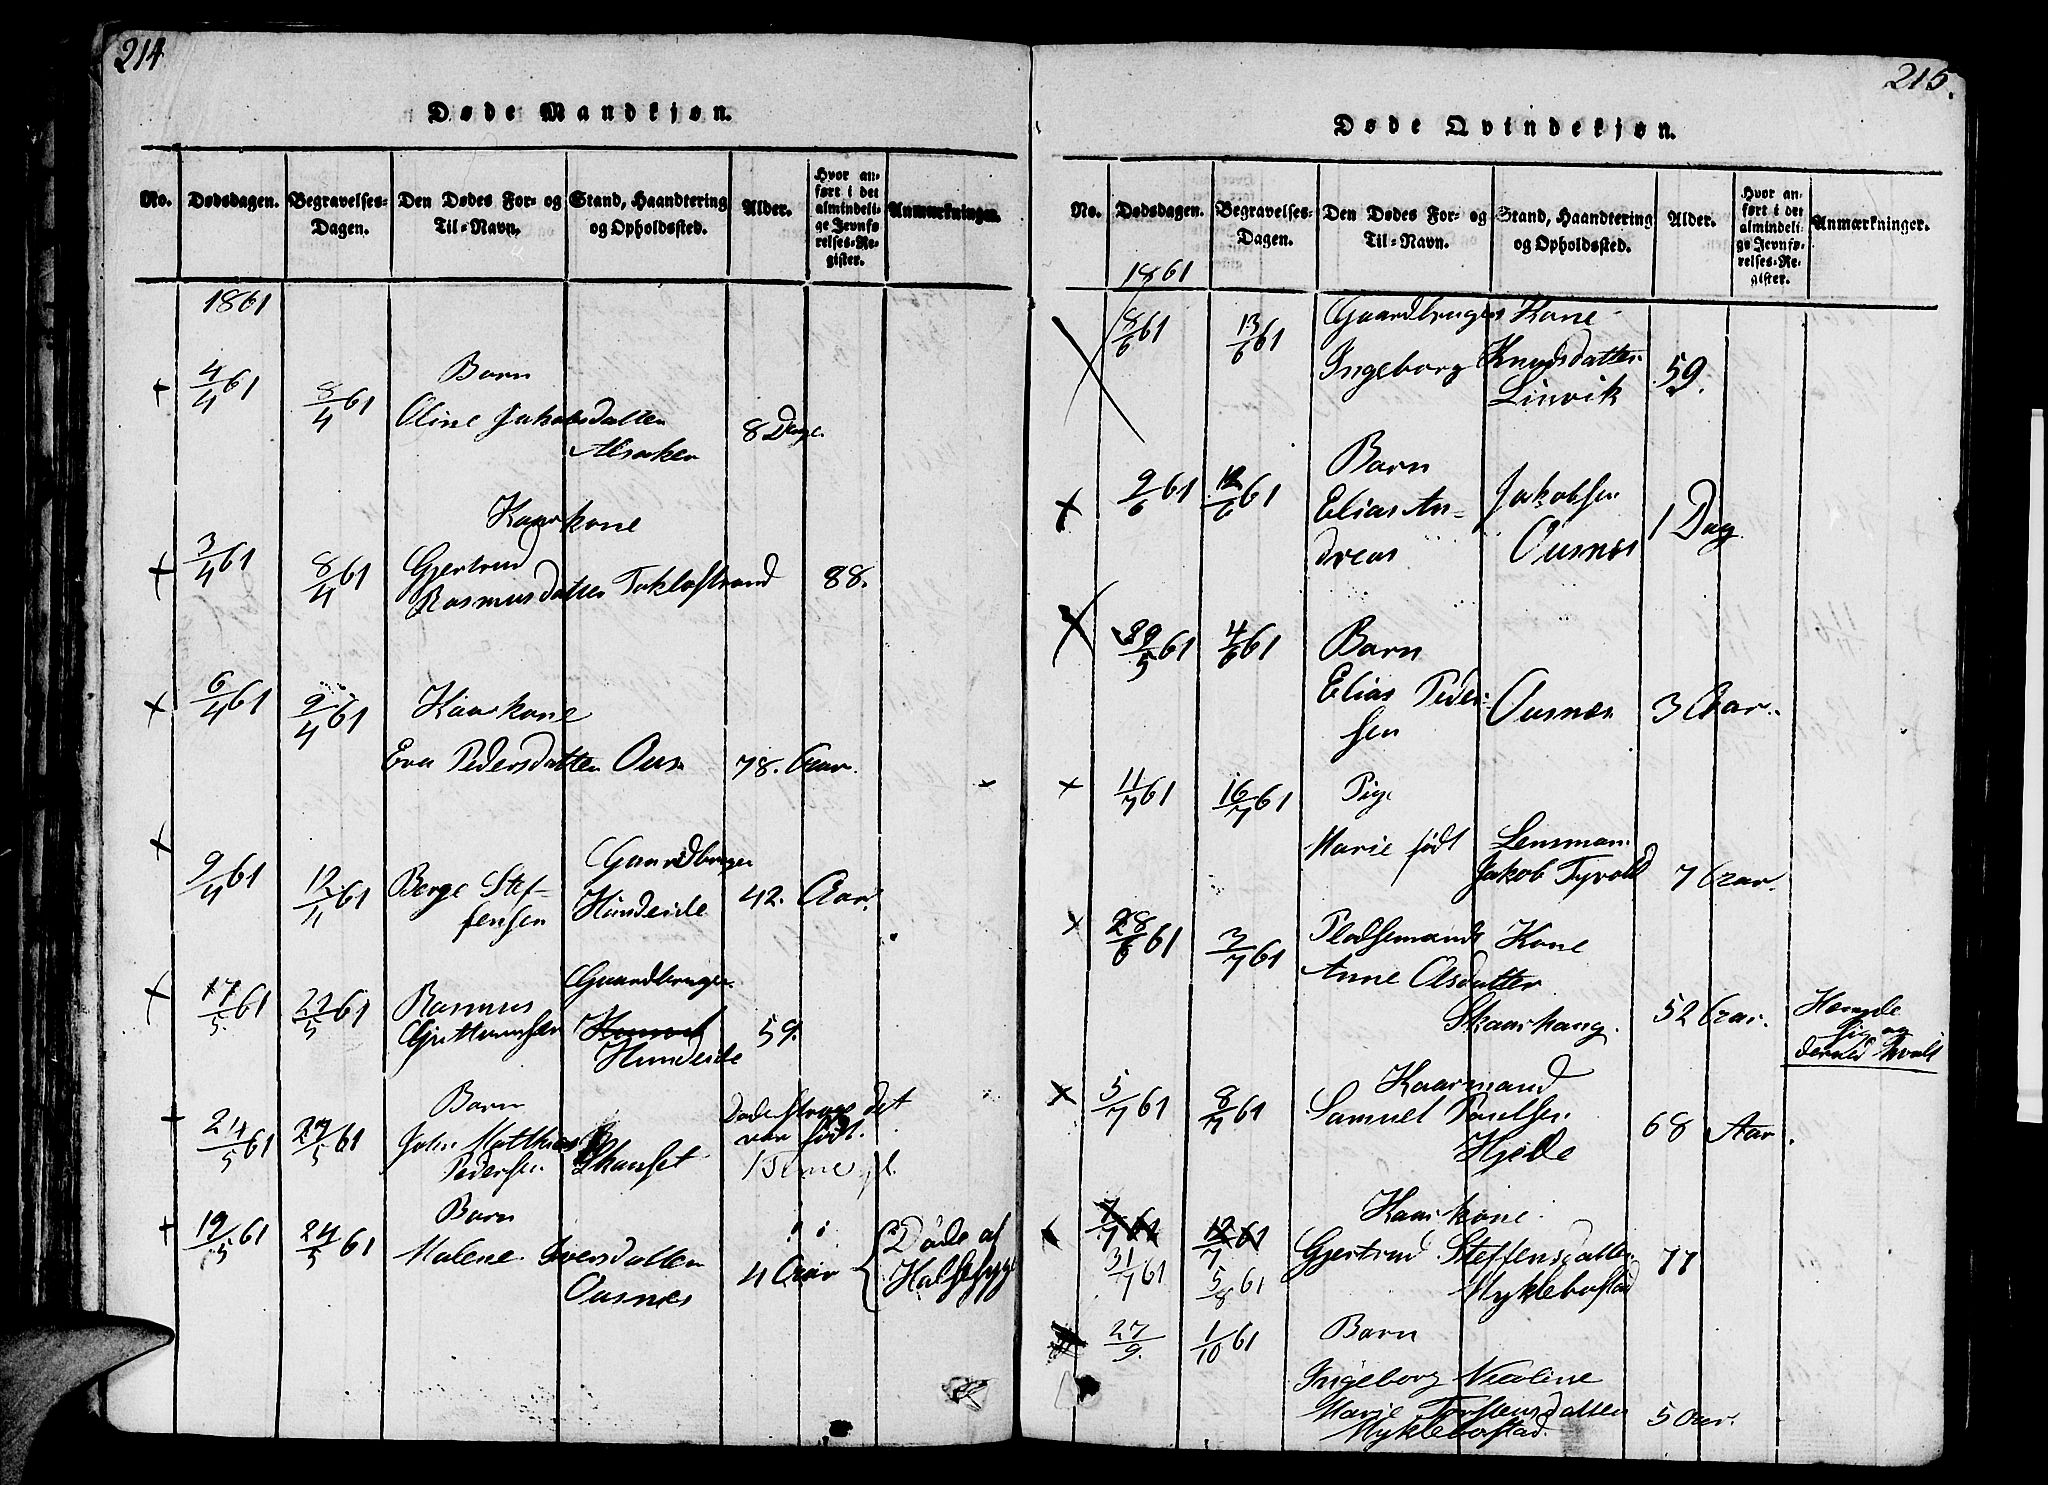 214
Døde Mandkjøn.
No.
Dødsdagen.
Begravelses-
Dagen.
Den Dødes For- og
Til-Navn.
Stand, Haandtering
og Opholdssted.
Alder.
Hvor an-
ført i det
almindeli-
ge Jevnfø-
relses-Re-
gister.
Anmærkninger.
1861
+ 4/4 61 8/4 61 Barn
Oline Jakobsdatter 8 Dage
Alsaker
+ 3/4 61 8/4 61 Kaarkone
Gjertrud
Rasmusdatter Taklostrand 88.
+ 6/4 61 9/4 61 Kaarkone
Eva Pedersdatter Ous 78. Aar.
+ 9/4 61 12/4 61 Gaardbruger
Berge Stef- Hundeide 42. Aar.
fensen
+ 17/5 61 22/5 61 Rasmus Gaardbruger
Guttormsen 59.
Hundeide
+ 24/5 61 27/5 61 Barn Døde strax det
John Matthias var født.
Pedersen Skauset
+ 19/5 61 24/5 61 Barn
Malene Iversdatter 4 Aar { Døde af
Ousnes Halsesyge
215.
Døde Qvindekjøn.
No.
Dødsdagen.
Begravelses-
Dagen.
Den Dødes For- og
Til-Navn.
Stand, Haandtering
og Opholdssted.
Alder.
Hvor an-
ført i det
almindeli-
ge Jevnfø-
relses-Re-
gister.
Anmærkninger.
1861
8/6 61 13/6 61 Gaardbrugers Kone
Ingeborg Knudsdatter 59.
Linvik
+ 9/6 61 12/6 61 Barn
Elias An- Jakobsen 1 Dag
dreas Ousnes
29/5 61 4/6 61 Barn
Elias Peder- Ousnes 3 Aar.
sen
+ 11/7 61 16/7 61 Pige
Marie født Lensman
Jakob Tyvold 7 Aar.
+ 28/6 61 3/7 61 Pladsemands Kone
Anne Olsdatter
Skaarhaug. 52 Aar. Hængde
sig og
derved qvalt
+ 5/7 61 8/7 61 Kaarmand
Samuel Paulsen 68 Aar.
Hjelle
7/7 61 12/7 61 Kaarkone
31/7 61 5/8 61 Gjertrud Steffensdatter 77
Myklebostad
27/9. 1/10 61 Barn
Ingeborg Nicoline
Marie Torstensdatter 5 Aar.
Myklebostad.